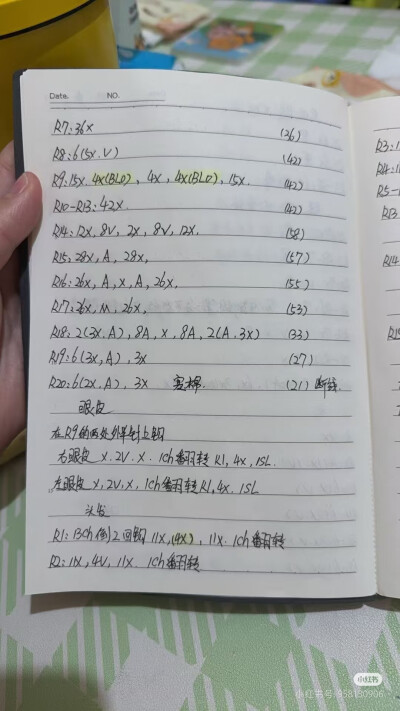 Date. NO.
R7:36x (36)
R8:6(5x.V) (42)
R9:15x.4x(BLO),4x,4x(BLO),15x. (42)
R10-R13:42x. (42)
R14:12x,8V,2x,8V,12x. (58)
R15:28x,A,28x, (57)
R16:26x,A,x,A,26x, (55)
R17:26x,M,26x, (53)
R18:2(3x.A),8A,x,8A,2(A.3x) (33)
R19:6(3x,A),3x (27)
R20:6(2x.A),3x 塞棉. (21) 断线.
眼皮
在R9的两处外半针上钩
右眼皮 x.2V.x.1ch翻转R1,4x,1SL.
左眼皮 x,2V,x,1ch翻转R1,4x.1SL
头发
R1:13ch倒2回钩11x,(4x),11x.1ch翻转
R2:11x,4V,11x.1ch翻转
R3:1
R4:1
R5-
R13
R14
R15
小红书
小红书号:958130906